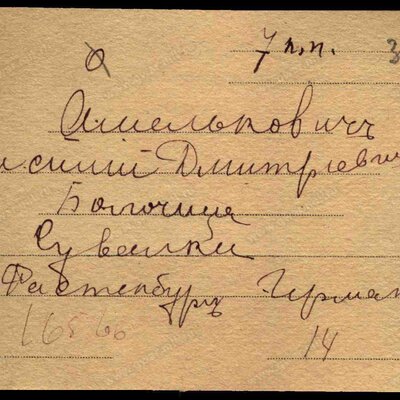 7 п.п. 3
Омельковичъ
Дмитріевич
Болочица
Сувалки
Растенбургъ Герман
16566
14